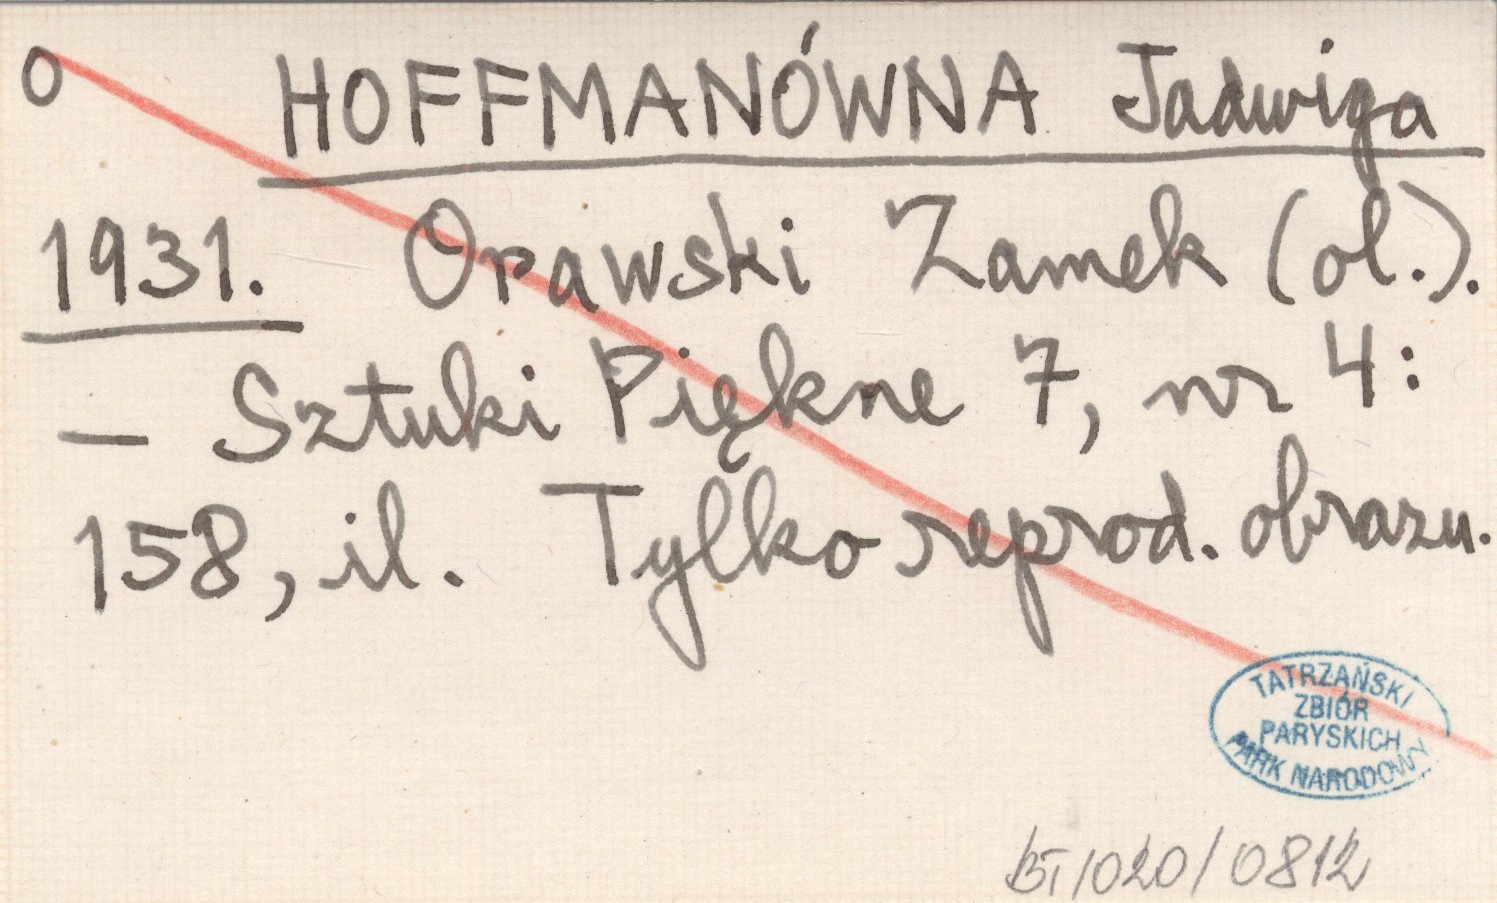 O HOFFMANÓWNA Jadwiga
1931. Orawski Zamek (ol.).
– Sztuki Piękne 7, nr 4:
158, il. Tylko reprod. obrazu.
TATRZAŃSKI
ZBIÓR
PARYSKICH
PARK NARODOWY
BT/020/0812